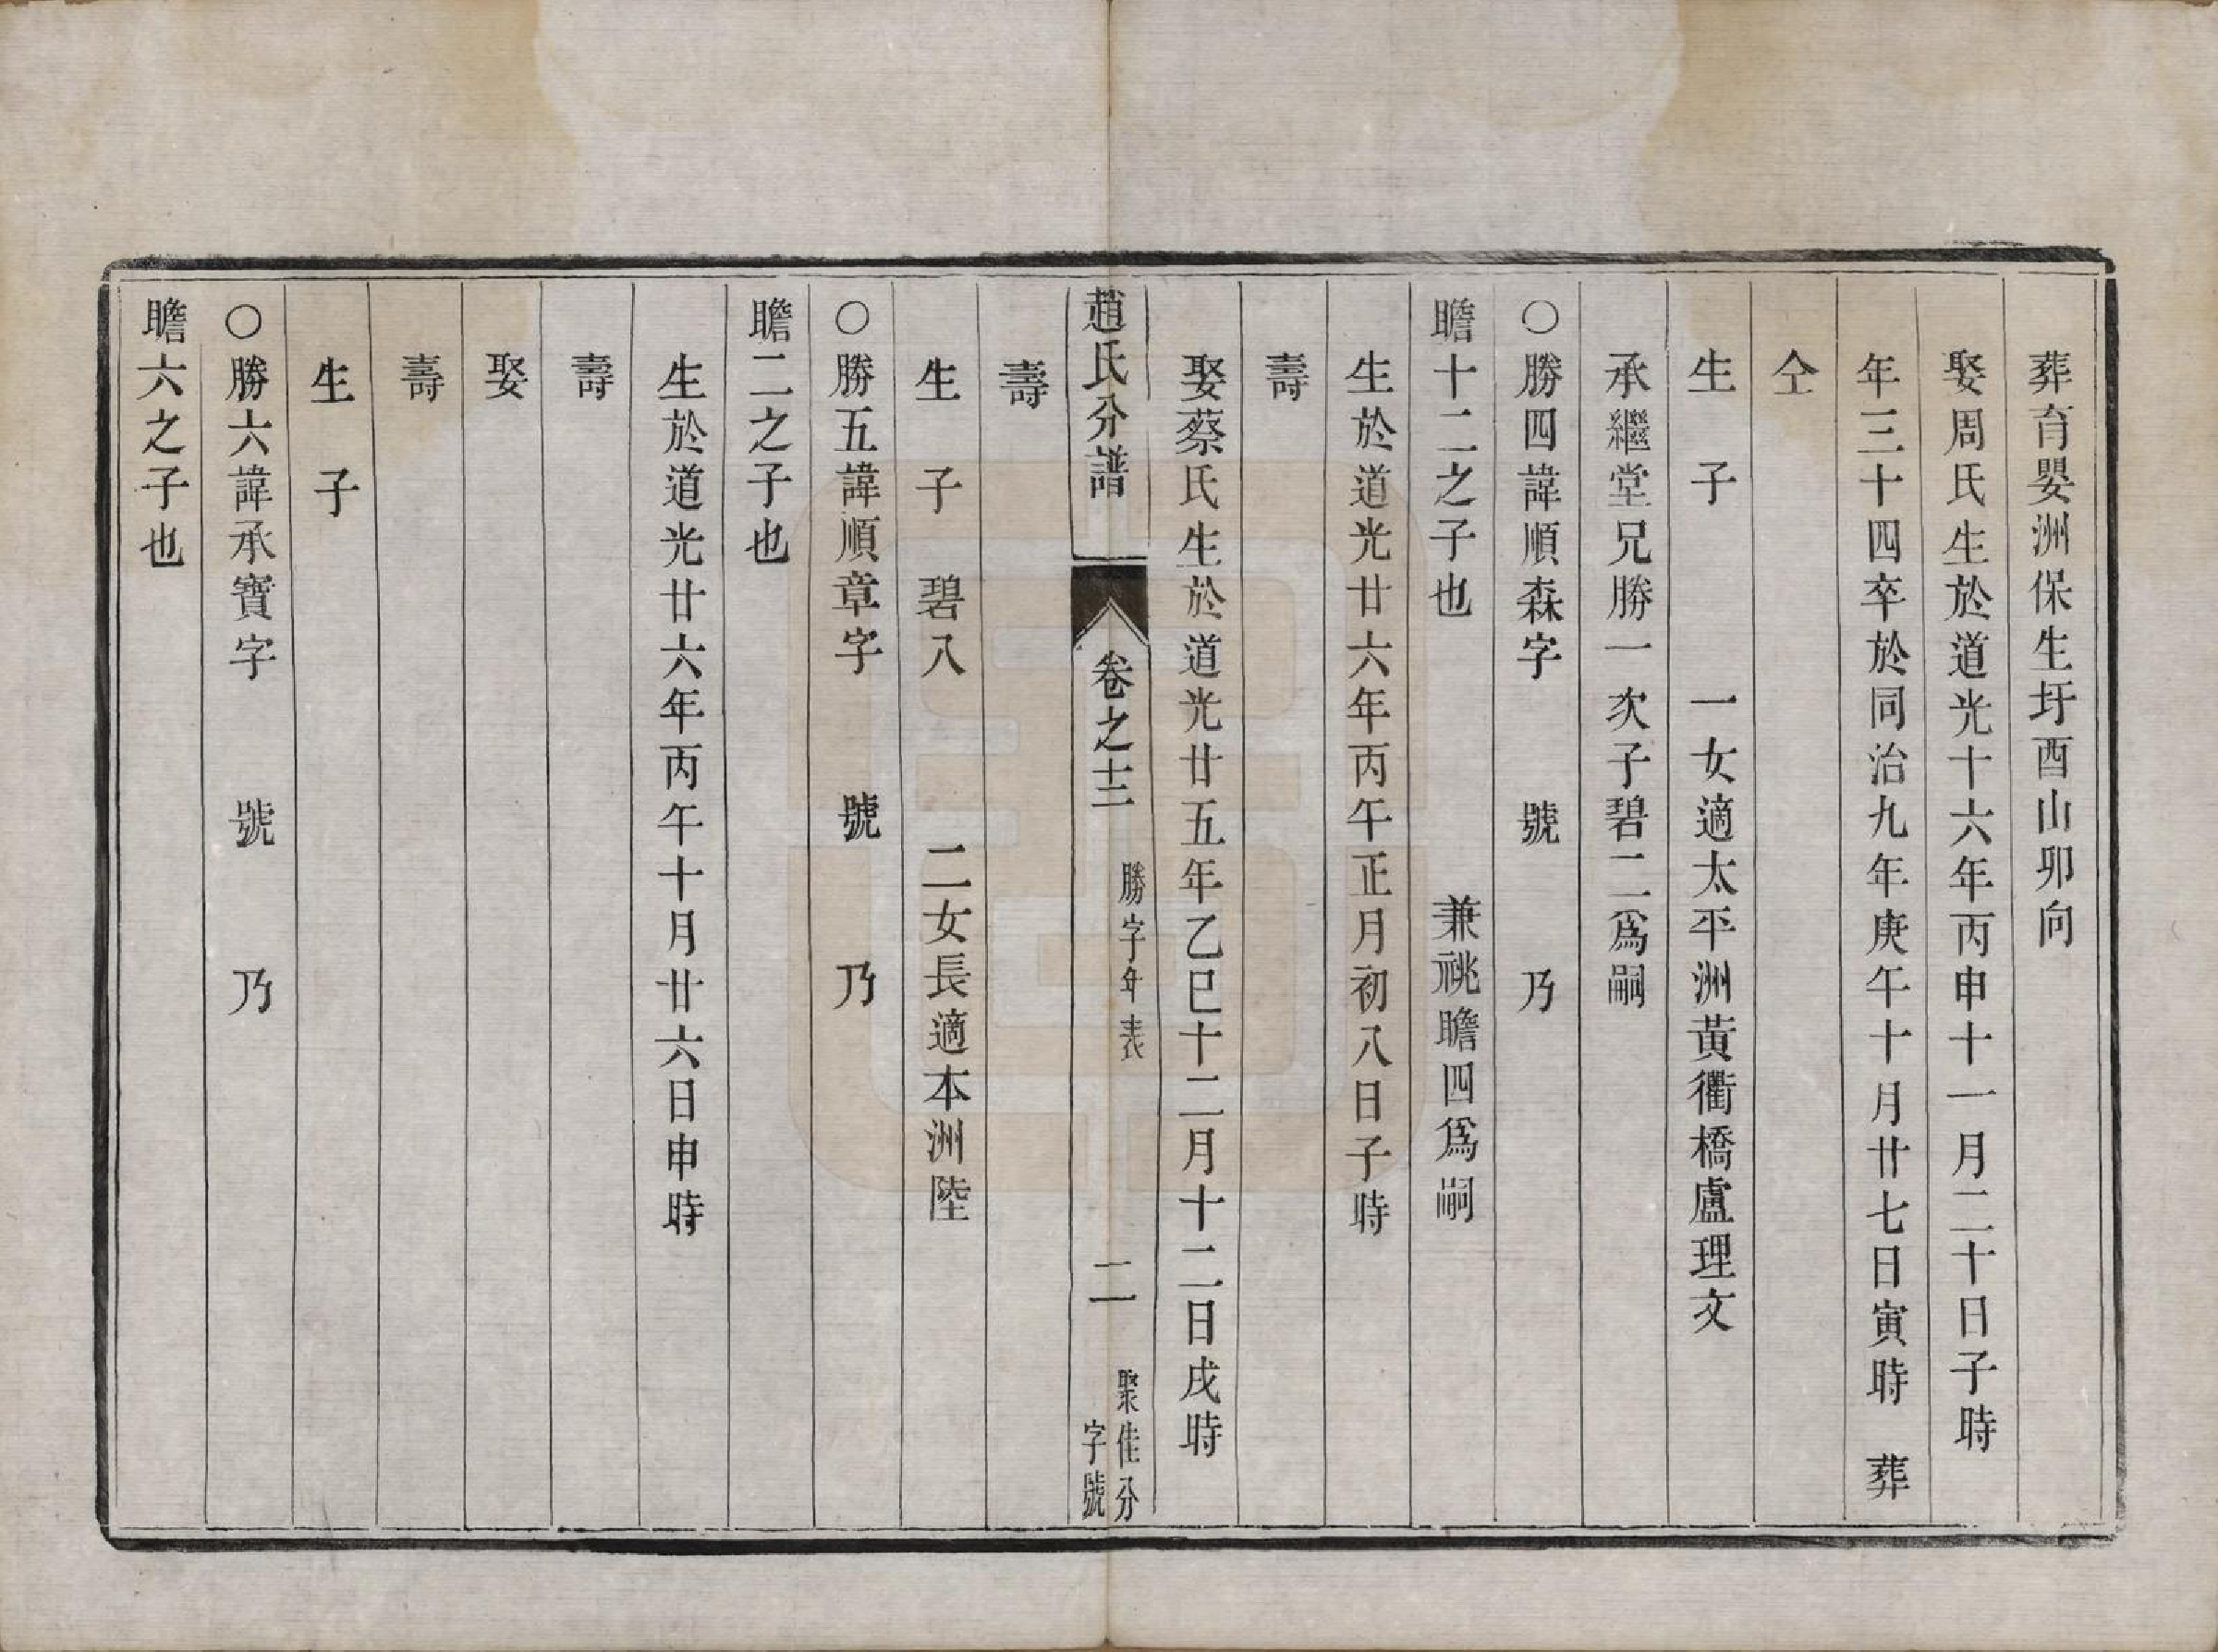 葬育嬰洲保生圩酉山卯向
娶周氏生於道光十六年丙申十一月二十日子時
年三十四卒於同治九年庚午十月廿七日寅時　葬
仝
生　子　　　一女適太平洲黃衢橋盧理文
承繼堂兄勝一次子碧二爲嗣
○勝四諱順森字　　號　　乃
瞻十二之子也　　　　　兼祧瞻四爲嗣
生於道光廿六年丙午正月初八日子時
壽
娶蔡氏生於道光廿五年乙巳十二月十二日戌時
趙氏分譜　卷之十三　勝字年表　二　聚佳分字號
壽
生　子　碧八　　　二女長適本洲陸
○勝五諱順章字　　號　　乃
瞻二之子也
生於道光廿六年丙午十月廿六日申時
壽
娶
壽
生　子
○勝六諱承寶字　　號　　乃
瞻六之子也